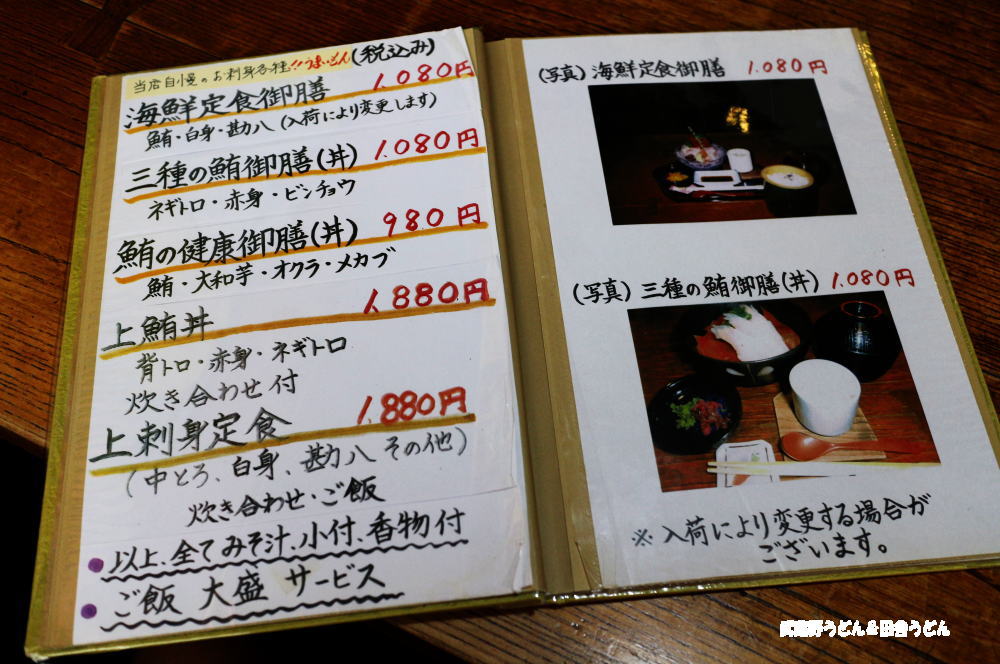 当店自慢のお刺身各種!!うまいもん(税込み)
海鮮定食御膳 1.080円
鮪・白身・勘八(入荷により変更します)
三種の鮪御膳(丼) 1.080円
ネギトロ・赤身・ビンチョウ
鮪の健康御膳(丼) 980円
鮪・大和芋・オクラ・メカブ
上鮪丼 1.880円
背トロ・赤身・ネギトロ
炊き合わせ付
上刺身定食 1.880円
(中とろ、白身、勘八 その他)
炊き合わせ・ご飯
以上、全てみそ汁、小付、香物付
ご飯 大盛 サービス
(写真) 海鮮定食御膳 1.080円
(写真) 三種の鮪御膳(丼) 1.080円
※入荷により変更する場合が
ございます。
武蔵野うどん&田舎うどん